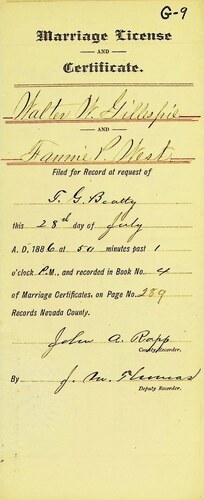 G-9
Marriage License
AND
Certificate.
Walter W. Gillispie
AND
Fannie P. West
Filed for Record at request of
T. G. Beatty
this 28th day of July
A. D. 1886 at 50 minutes past 1
o'clock P.M., and recorded in Book No. 4
of Marriage Certificates, on Page No. 289
Records Nevada County.
John A. Rapp
County Recorder.
By J. M. Thomas
Deputy Recorder.